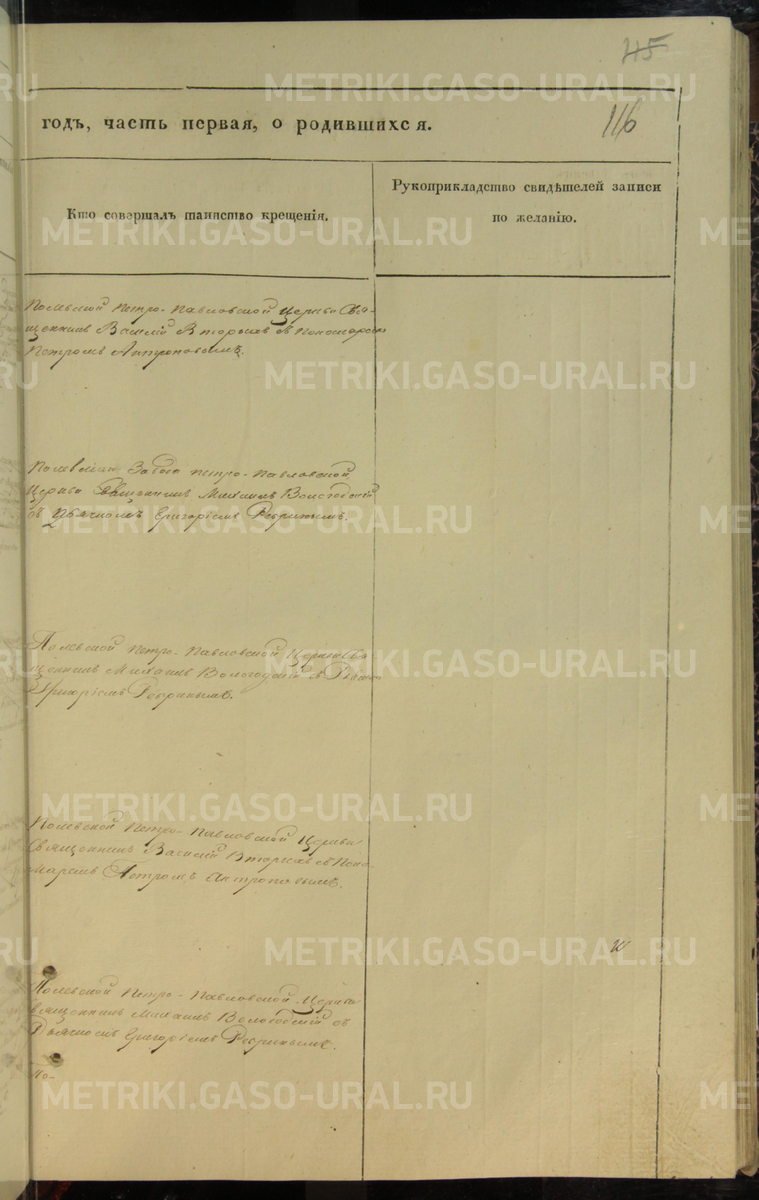 45
116
годъ, часть первая, о родившихся.
Кто совершалъ таинство крещенія.
Рукоприкладство свидѣтелей записи
по желанію.
Полевской Петро-Павловской Церкви Свя-
щенникъ Василій Вторыхъ съ Пономаремъ
Петромъ Антроповымъ.
Завода Петро-Павловской
Церкви Священникъ Михаилъ Вологодскій
съ Дьячкомъ Григоріемъ Ребринымъ.
Полевской Петро-Павловской Церкви Свя
щенникъ Михаилъ Вологодскій съ
Григоріемъ Ребринымъ.
Полевской Петро-Павловской Церкви
Священникъ Василій Вторыхъ съ Поно-
маремъ Петромъ Антроповымъ.
Полевской Петро-Павловской Церкви
вященникъ Михаилъ Вологодскій съ
Дьячкомъ Григоріемъ Ребринымъ.
По-
METRIKI.GASO-URAL.RU